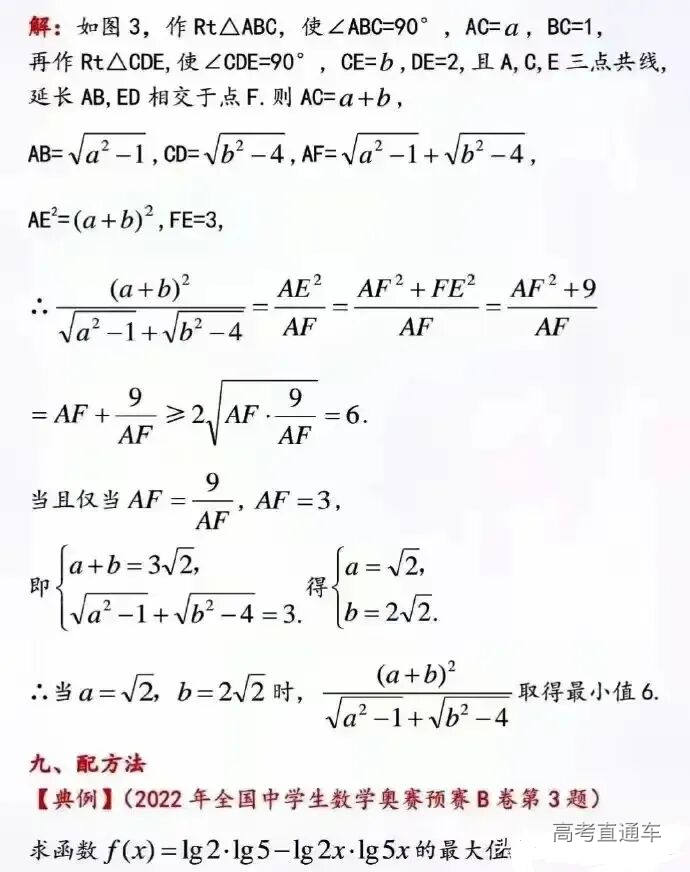 解：如图3，作Rt△ABC，使∠ABC=90°，AC=a，BC=1，
再作Rt△CDE,使∠CDE=90°，CE=b,DE=2,且A,C,E三点共线,
延长AB,ED相交于点F.则AC=a+b，
AB=√(a²-1),CD=√(b²-4),AF=√(a²-1)+√(b²-4)，
AE²=(a+b)²,FE=3,
∴ (a+b)²/(√(a²-1)+√(b²-4)) = AE²/AF = (AF²+FE²)/AF = (AF²+9)/AF
= AF + 9/AF ≥ 2√(AF·9/AF) = 6.
当且仅当 AF = 9/AF, AF = 3，
即{a+b=3√2, √(a²-1)+√(b²-4)=3. 得{a=√2, b=2√2.
∴当a=√2，b=2√2时，(a+b)²/(√(a²-1)+√(b²-4))取得最小值6.
九、配方法
【典例】（2022年全国中学生数学奥赛预赛B卷第3题）
求函数f(x)=lg2·lg5−lg2x·lg5x的最大值
高考直通车